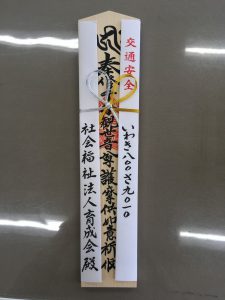 交通安全
いわき八〇〇さ九〇一〇
奉修
観世音
護摩供
祈攸
社会福祉法人育成会殿